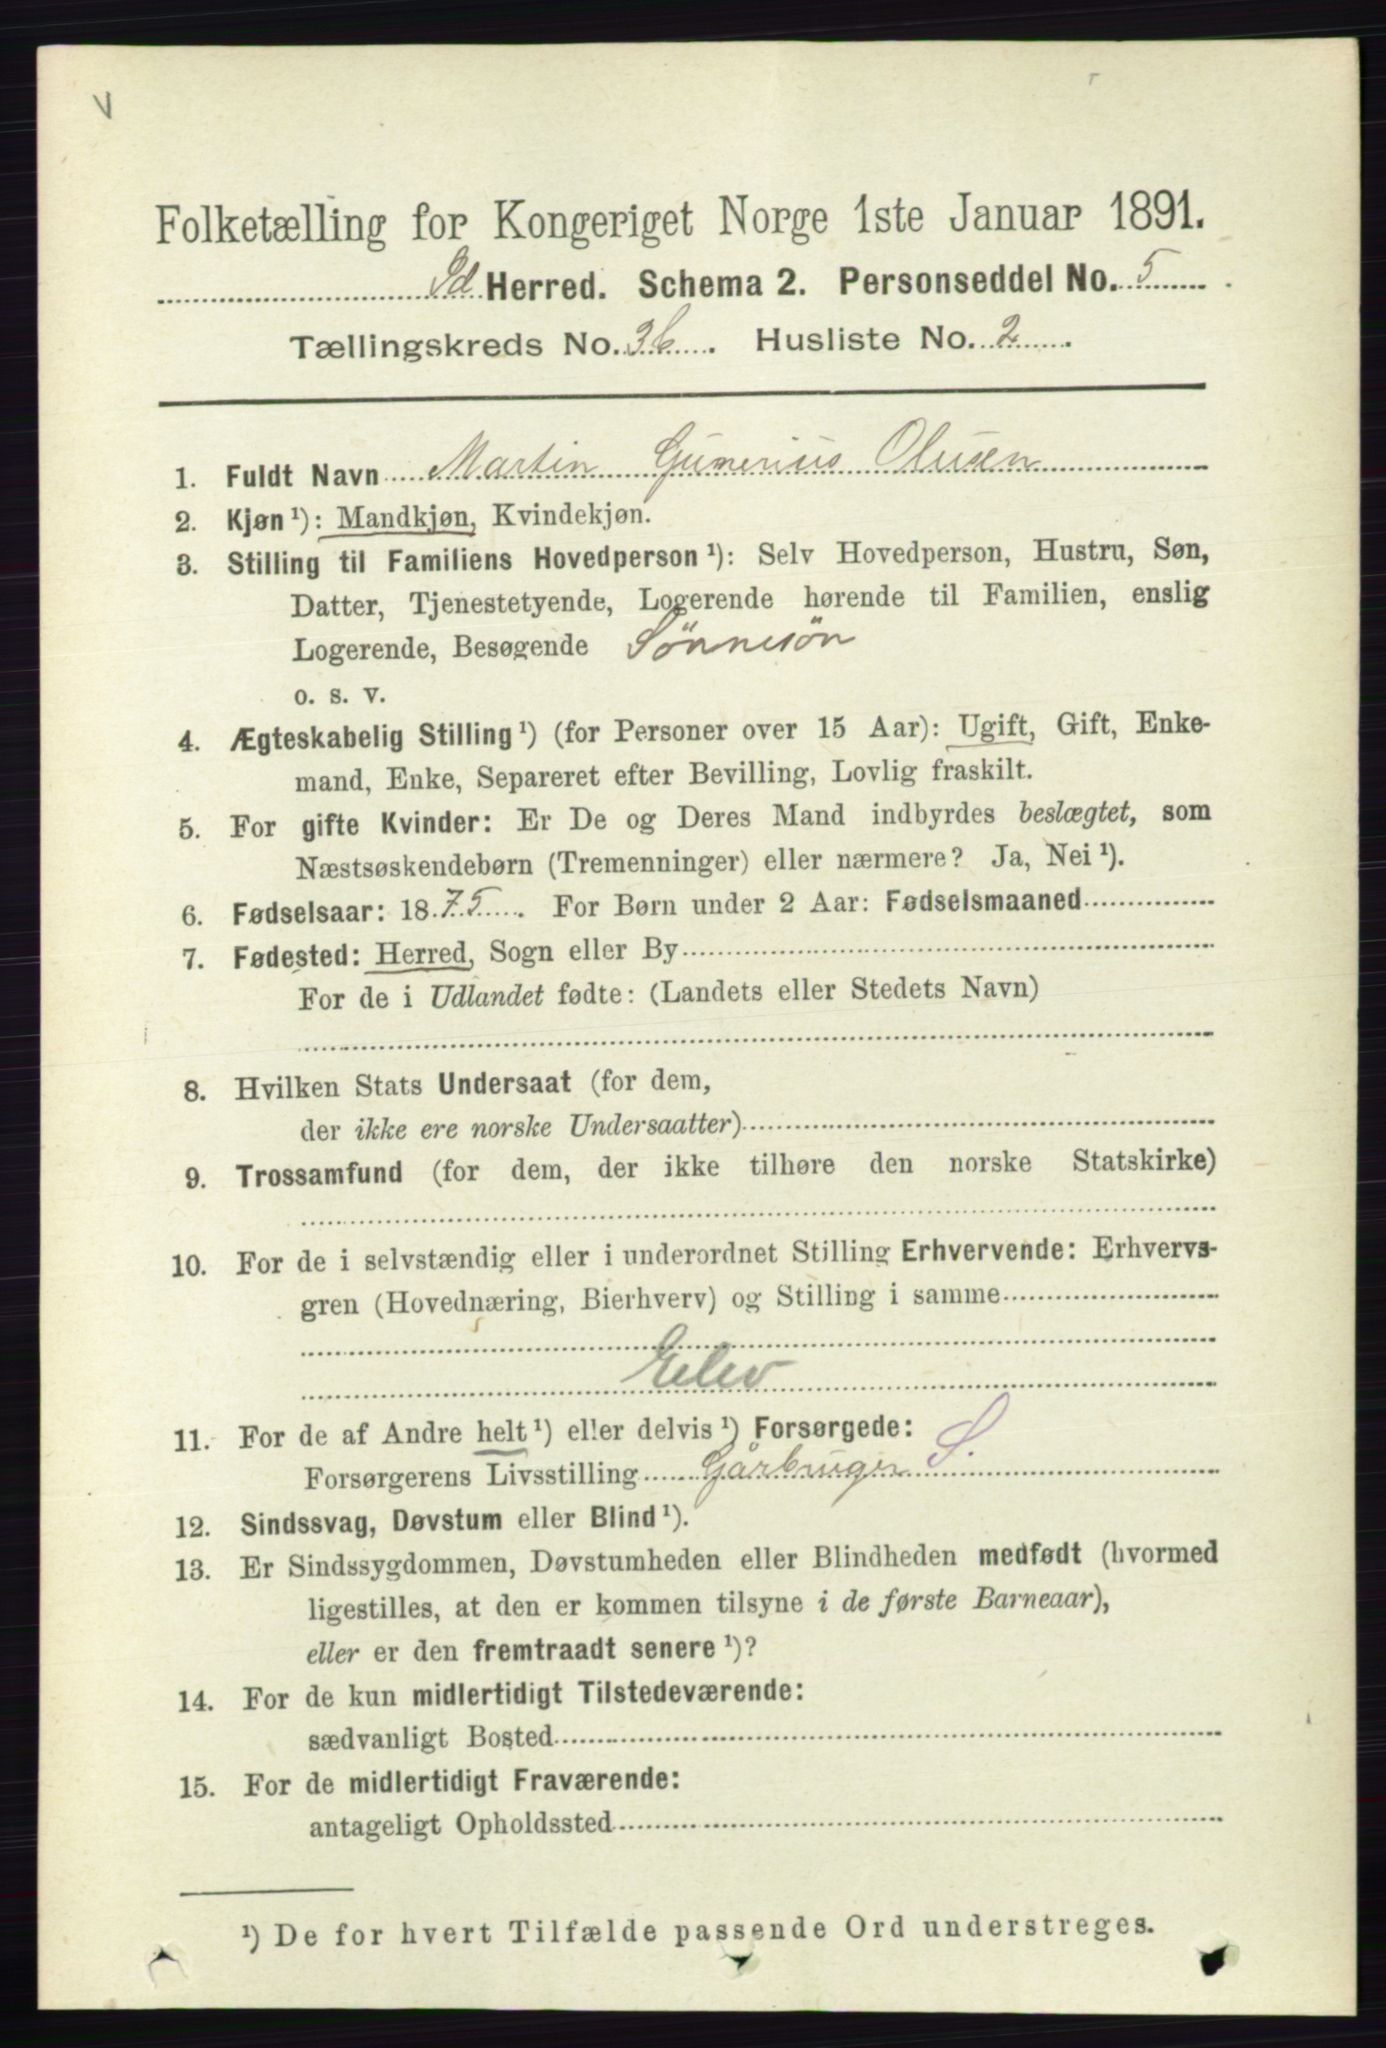 V
Folketælling for Kongeriget Norge 1ste Januar 1891.
Id Herred. Schema 2. Personseddel No. 5
Tællingskreds No. 3b. Husliste No. 2.
1. Fuldt Navn Martin Gunerius Olusen
2. Kjøn ¹): Mandkjøn, Kvindekjøn.
3. Stilling til Familiens Hovedperson ¹): Selv Hovedperson, Hustru, Søn,
Datter, Tjenestetyende, Logerende hørende til Familien, enslig
Logerende, Besøgende Sönnesön
o. s. v.
4. Ægteskabelig Stilling ¹) (for Personer over 15 Aar): Ugift, Gift, Enke-
mand, Enke, Separeret efter Bevilling, Lovlig fraskilt.
5. For gifte Kvinder: Er De og Deres Mand indbyrdes beslægtet, som
Næstsøskendebørn (Tremenninger) eller nærmere? Ja, Nei ¹).
6. Fødselsaar: 1875. For Børn under 2 Aar: Fødselsmaaned
7. Fødested: Herred, Sogn eller By
For de i Udlandet fødte: (Landets eller Stedets Navn)
8. Hvilken Stats Undersaat (for dem,
der ikke ere norske Undersaatter)
9. Trossamfund (for dem, der ikke tilhøre den norske Statskirke)
10. For de i selvstændig eller i underordnet Stilling Erhvervende: Erhvervs-
gren (Hovednæring, Bierhverv) og Stilling i samme
Elev
11. For de af Andre helt ¹) eller delvis ¹) Forsørgede:
Forsørgerens Livsstilling Gårbruger S.
12. Sindssvag, Døvstum eller Blind ¹).
13. Er Sindssygdommen, Døvstumheden eller Blindheden medfødt (hvormed
ligestilles, at den er kommen tilsyne i de første Barneaar),
eller er den fremtraadt senere ¹)?
14. For de kun midlertidigt Tilstedeværende:
sædvanligt Bosted
15. For de midlertidigt Fraværende:
antageligt Opholdssted
¹) De for hvert Tilfælde passende Ord understreges.